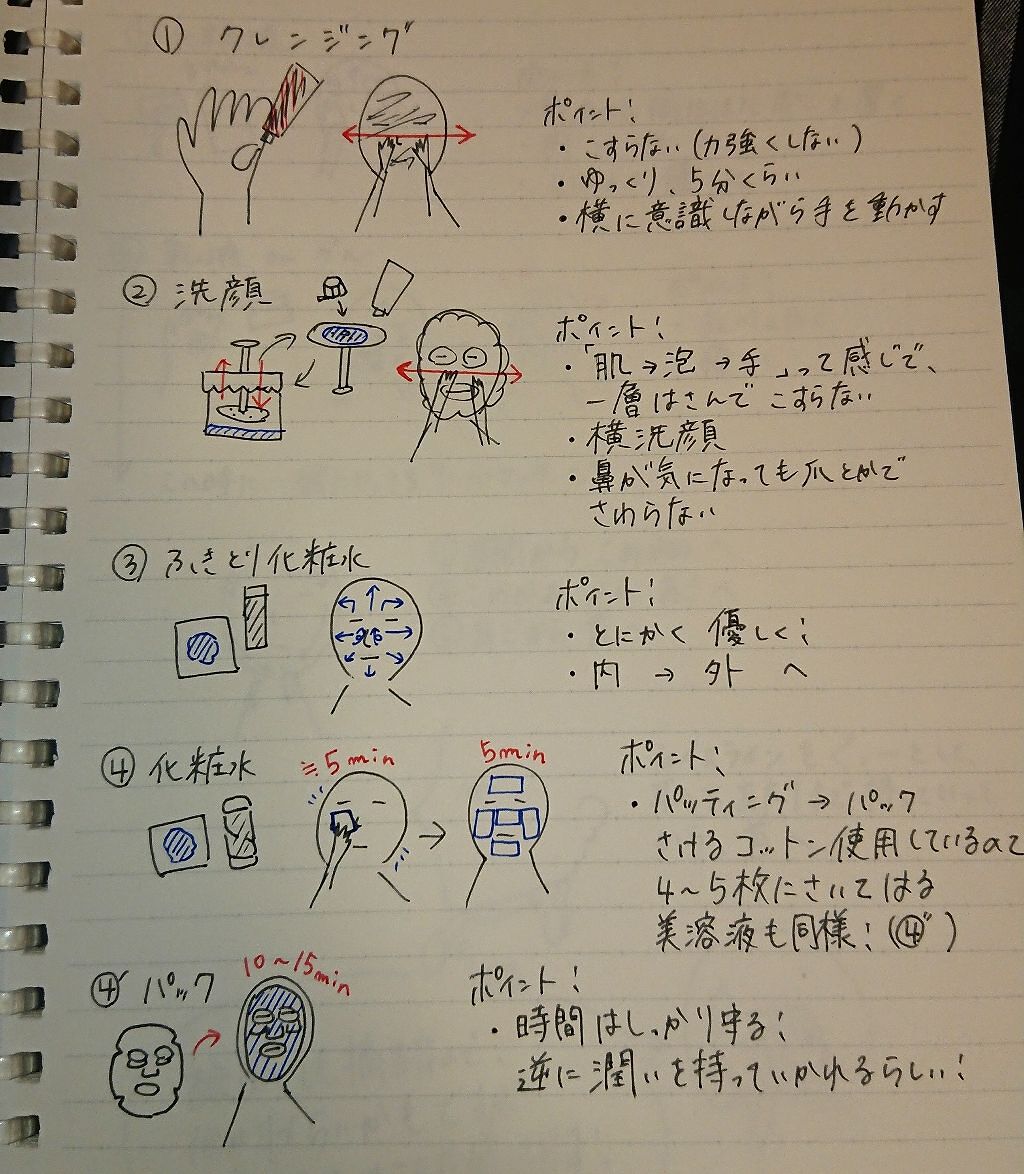 ① クレンジング
ポイント!
・こすらない(力強くしない)
・ゆっくり、5分くらい
・横に意識しながら手を動かす
② 洗顔
ポイント!
・「肌→泡→手」って感じで、
一層はさんでこすらない
・横洗顔
・鼻が気になっても爪とかで
さわらない
③ ふきとり化粧水
ポイント!
・とにかく 優しく!
・内 → 外 へ
④ 化粧水
≒5min
5min
ポイント!
・パッティング→パック
さけるコットン使用しているので
4~5枚にさいてはる
美溶液も同様!(④')
④' パック
10~15min
ポイント!
・時間はしっかり守る!
逆に潤いを持っていかれるらしい!